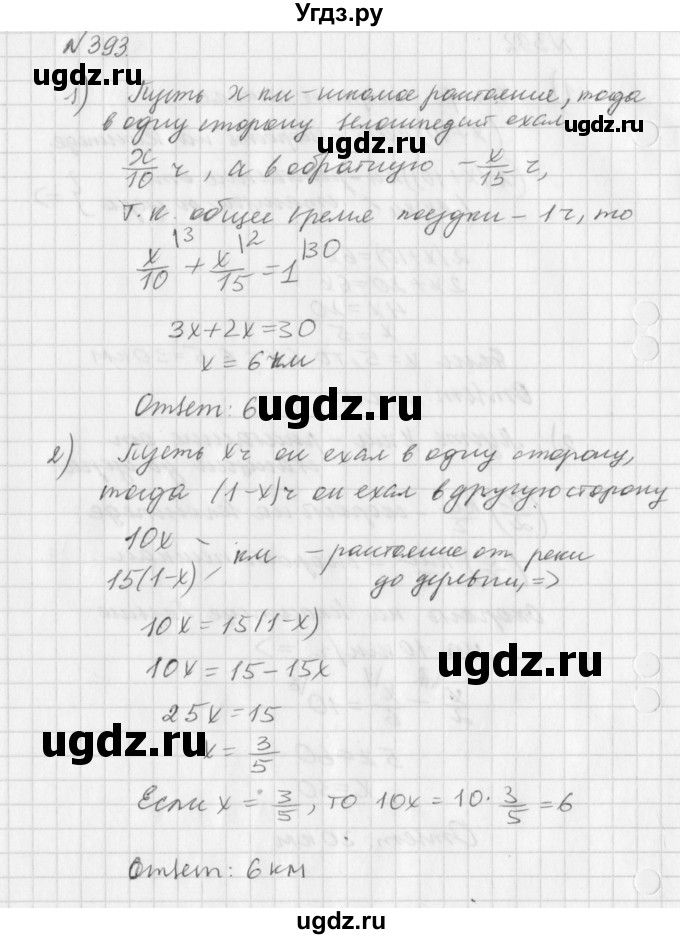 Угдз.ру
№393
1) Пусть x км - искомое расстояние, тогда
в одну сторону велосипедист ехал
x/10 ч, а в обратную - x/15 ч,
т.к. общее время поездки - 1ч, то
x/10 |3 + x/15 |2 = 1 |30
3x+2x=30
x = 6 км
Ответ: 6
2) Пусть xч он ехал в одну сторону,
тогда (1-x)ч он ехал в другую сторону
10x
15(1-x) км - расстояние от реки
до деревни, =>
10x = 15(1-x)
10x = 15-15x
25x = 15
x = 3/5
Если x = 3/5, то 10x = 10 · 3/5 = 6
Ответ: 6 км
ugdz.ru
ugdz.ru
ugdz.ru
ugdz.ru
ugdz.ru
ugdz.ru
ugdz.ru